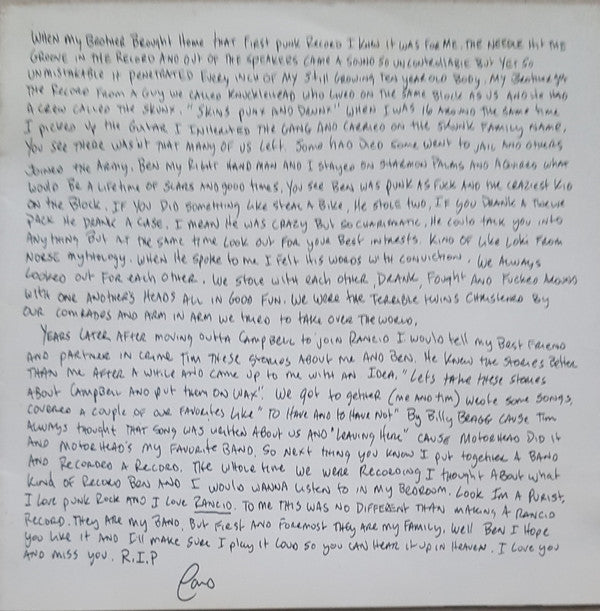 WHEN MY BROTHER BROUGHT HOME THAT FIRST PUNK RECORD I KNEW IT WAS FOR ME. THE NEEDLE HIT THE
GROOVE IN THE RECORD AND OUT OF THE SPEAKERS CAME A SOUND SO UNCONTROLLABLE BUT YET SO
UNMISTAKABLE IT PENETRATED EVERY INCH OF MY STILL GROWING TEN YEAR OLD BODY. MY BROTHER
THE RECORD FROM A GUY WE CALLED KNUCKLEHEAP WHO LIVED ON THE SAME BLOCK AS US AND HE HAD
A CREW CALLED THE SKUNX. "SKINS PUNX AND DRUNX" WHEN I WAS 16 AROUND THE SAME TIME
I PICKED UP THE GUITAR I INHERITED THE GANG AND CARRIED ON THE SKUNK FAMILY NAME.
YOU SEE THERE WASN'T THAT MANY OF US LEFT. SOME HAD DIED SOME WENT TO JAIL AND OTHERS
JOINED THE ARMY. BEN MY RIGHT HAND MAN AND I STAYED ON SHARMON PALMS AND AQUIRED WHAT
WOULD BE A LIFETIME OF SCARS AND GOOD TIMES. YOU SEE BEN WAS PUNK AS FUCK AND THE CRAZIEST KID
ON THE BLOCK. IF YOU DID SOMETHING LIKE STEAL A BIKE, HE STOLE TWO, IF YOU DRANK A TWELVE
PACK HE DRANK A CASE. I MEAN HE WAS CRAZY BUT SO CHARISMATIC. HE COULD TALK YOU INTO
ANYTHING BUT AT THE SAME TIME LOOK OUT FOR YOUR BEST INTERESTS. KIND OF LIKE LOKI FROM
NORSE MYTHOLOGY. WHEN HE SPOKE TO ME I FELT HIS WORDS WITH CONVICTION. WE ALWAYS
LOOKED OUT FOR EACH OTHER. WE STOLE WITH EACH OTHER, DRANK, FOUGHT AND FUCKED AROUND
WITH ONE ANOTHER'S HEADS ALL IN GOOD FUN. WE WERE THE TERRIBLE TWINS CHRISTENED BY
OUR COMRADES AND ARM IN ARM WE TRIED TO TAKE OVER THE WORLD.
YEARS LATER AFTER MOVING OUTTA CAMPBELL TO JOIN RANCID I WOULD TELL MY BEST FRIEND
AND PARTNER IN CRIME TIM THESE STORIES ABOUT ME AND BEN. HE KNEW THE STORIES BETTER
THAN ME AFTER A WHILE AND CAME UP TO ME WITH AN IDEA. "LETS TAKE THESE STORIES
ABOUT CAMPBELL AND PUT THEM ON WAX". WE GOT TO GETHER (ME AND TIM) WROTE SOME SONGS,
COVERED A COUPLE OF OUR FAVORITES LIKE "TO HAVE AND TO HAVE NOT" BY BILLY BRAGG CAUSE TIM
ALWAYS THOUGHT THAT SONG WAS WRITTEN ABOUT US AND "LEAVING HERE" CAUSE MOTORHEAD DID IT
AND MOTORHEAD'S MY FAVORITE BAND. SO NEXT THING YOU KNOW I PUT TOGETHER A BAND
AND RECORDED A RECORD. THE WHOLE TIME WE WERE RECORDING I THOUGHT ABOUT WHAT
KIND OF RECORD BEN AND I WOULD WANNA LISTEN TO IN MY BEDROOM. LOOK IM A PURIST,
I LOVE PUNK ROCK AND I LOVE RANCID. TO ME THIS WAS NO DIFFERENT THAN MAKING A RANCID
RECORD. THEY ARE MY BAND. BUT FIRST AND FOREMOST THEY ARE MY FAMILY. WELL BEN I HOPE
YOU LIKE IT AND I'LL MAKE SURE I PLAY IT LOUD SO YOU CAN HEAR IT UP IN HEAVEN. I LOVE YOU
AND MISS YOU. R.I.P